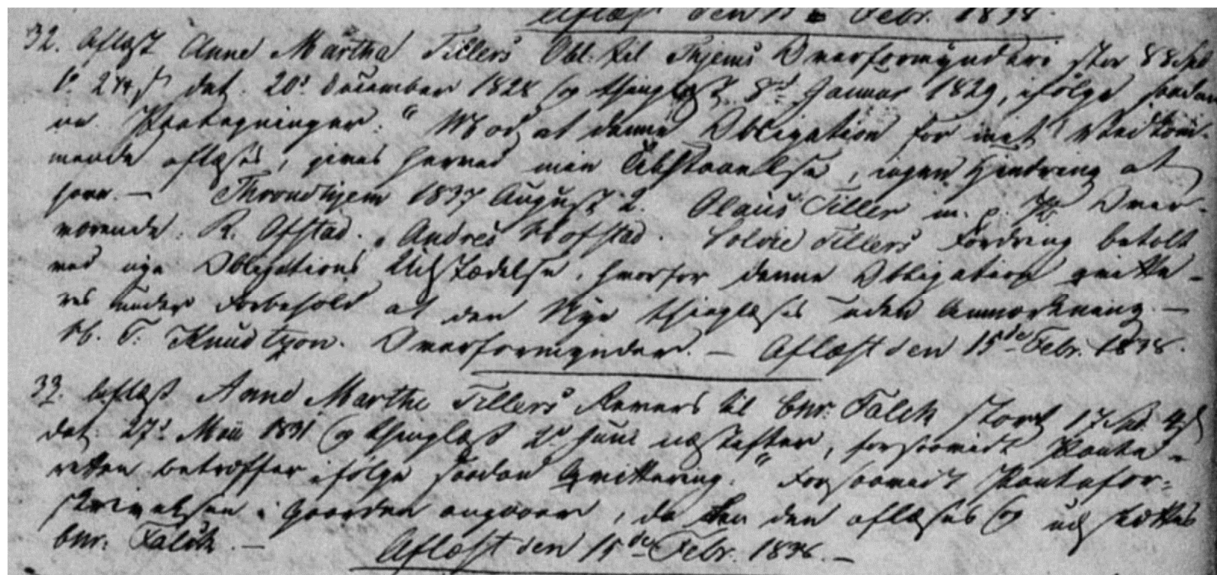 Aflæst den 15de Febr. 1838.
32. Aflæst Anne Martha Tillers Obl. til Thjems Overformynderi stor 88 Spd
1 # 24 s dat. 20de December 1828 og thinglæst 8de Januar 1829, ifølge saadan
ne Paategninger. "Mod at denne Obligation for mit Vedkom-
mende aflæses, gives herved min Tilstaaelse, ingen Hindring at
have. — Throndhjem 1837 August 2. Olaus Tiller m. p. P. Over-
værende: R. Ofstad. Andres Hofstad. Solvie Tillers Fordring betalt
ved nye Obligations Udstædelse, hvorfor denne Obligation qvitte-
res under Forbehold at den Nye thinglæses uden Anmærkning. —
H. T. Knudtzon. Overformynder. — Aflæst den 15de Febr. 1838.
33. Aflæst Anne Marthe Tillers Revers til Cnr. Falch stor 17 Spd. 4 #
dat. 27de Mai 1831 og thinglæst 2de Juni næstefter, forsaavidt Pante-
retten betræffer ifølge saadan Qvittering. "Forsaavidt Pantefor-
skrivelsen i Gaarden angaaer, da kan den aflæses og udslettes
Cnr. Falch. — Aflæst den 15de Febr. 1838. —